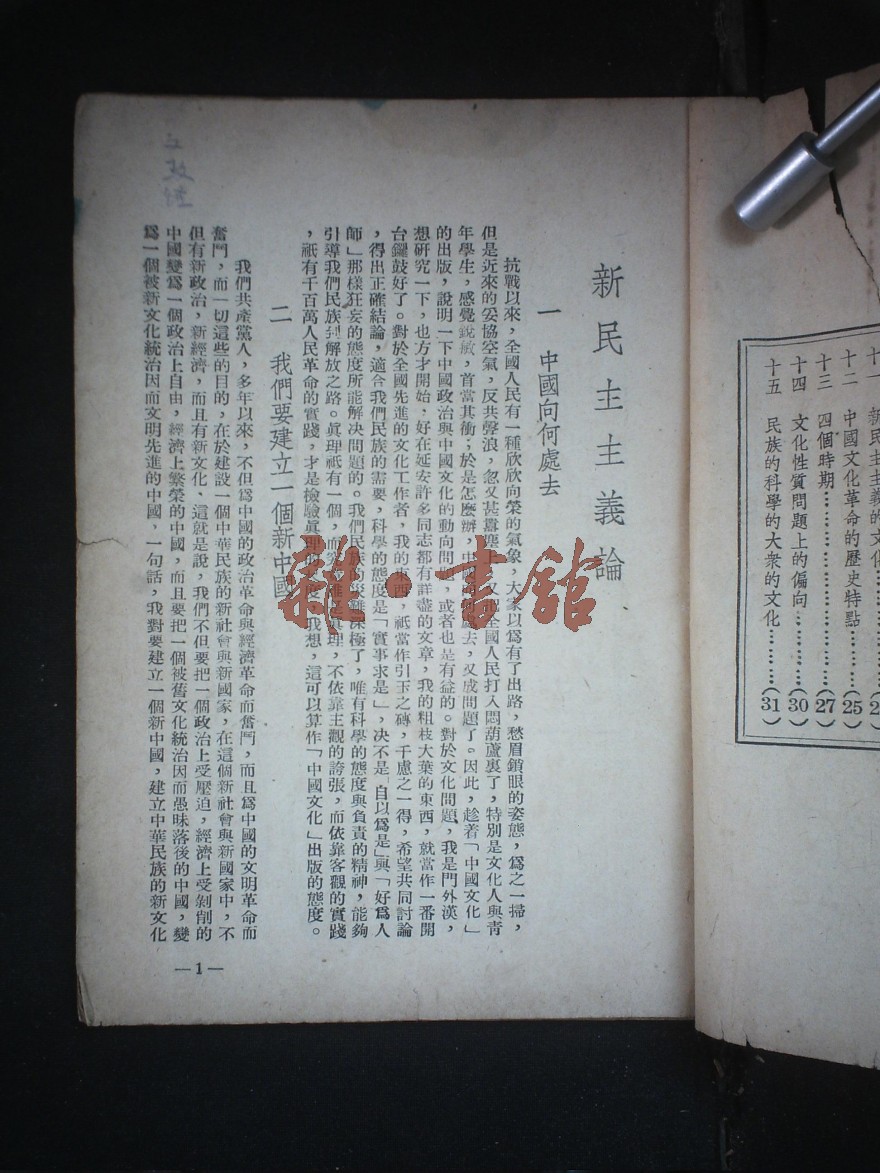 十一 新民主主義的文化…………(2
十二 中國文化革命的歷史特點………(25)
十三 四個時期………………………(27)
十四 文化性質問題上的偏向…………(30)
十五 民族的科學的大衆的文化………(31)
新民主主義論
一 中國向何處去
抗戰以來，全國人民有一種欣欣向榮的氣象，大家以爲有了出路，愁眉鎖眼的姿態，爲之一掃，
但是近來的妥協空氣，反共聲浪，忽又甚囂塵上，又把全國人民打入悶葫蘆裏了，特別是文化人與青
年學生，感覺銳敏，首當其衝；於是怎麼辦，中國向何處去，又成問題了。因此，趁着「中國文化」
的出版，說明一下中國政治與中國文化的動向問題，或者也是有益的。對於文化問題，我是門外漢，
想研究一下，也方才開始，好在延安許多同志都有詳盡的文章，我的粗枝大葉的東西，就當作一番開
台鑼鼓好了。對於全國先進的文化工作者，我的東西，祇當作引玉之磚，千慮之一得，希望共同討論
，得出正確結論，適合我們民族的需要，科學的態度是「實事求是」，决不是「自以爲是」與「好爲人
師」那樣狂妄的態度所能解决問題的。我們民族的災難深極了，唯有科學的態度與負責的精神，能夠
引導我們民族到解放之路。眞理祇有一個，而究 眞理，不依靠主觀的誇張，而依靠客觀的實踐
，祇有千百萬人民革命的實踐，才是檢驗眞理 我想，這可以算作「中國文化」出版的態度。
二 我們要建立一個新中國
我們共產黨人，多年以來，不但爲中國的政治革命與經濟革命而奮鬥，而且爲中國的文明革命而
奮鬥，而一切這些的目的，在於建設一個中華民族的新社會與新國家，在這個新社會與新國家中，不
但有新政治，新經濟，而且有新文化，這就是說，我們不但要把一個政治上受壓迫，經濟上受剝削的
中國變爲一個政治上自由，經濟上繁榮的中國，而且要把一個被舊文化統治因而愚昧落後的中國，變
爲一個被新文化統治因而文明先進的中國，一句話，我對要建立一個新中國，建立中華民族的新文化
—1—
書館